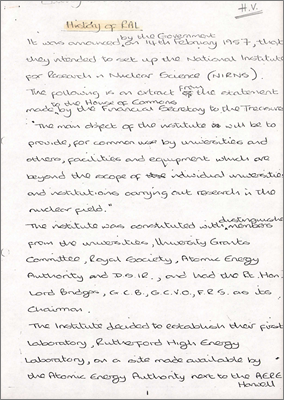 H.V.
History of RAL
by the Government
It was announced, on 14th February 1957, that
they intended to set up the National Institute
for Research in Nuclear Science (NIRNS).
The following is an extract from the statement
to the House of Commons
made by the Financial Secretary to the Treasurer
"The main object of the institute will be to
provide, for common use by universities and
others, facilities and equipment which are
beyond the scope of individual universities
and institutions carrying out research in the
nuclear field."
distinguished
The institute was constituted with members
from the universities, University Grants
Committee, Royal Society, Atomic Energy
Authority and D.S.I.R., and had the Rt. Hon.
Lord Bridges, G.C.B., G.C.V.O., F.R.S. as its
Chairman.
The Institute decided to establish their first
laboratory, Rutherford High Energy
Laboratory, on a site made available by
the Atomic Energy Authority next to the AERE
Harwell
1